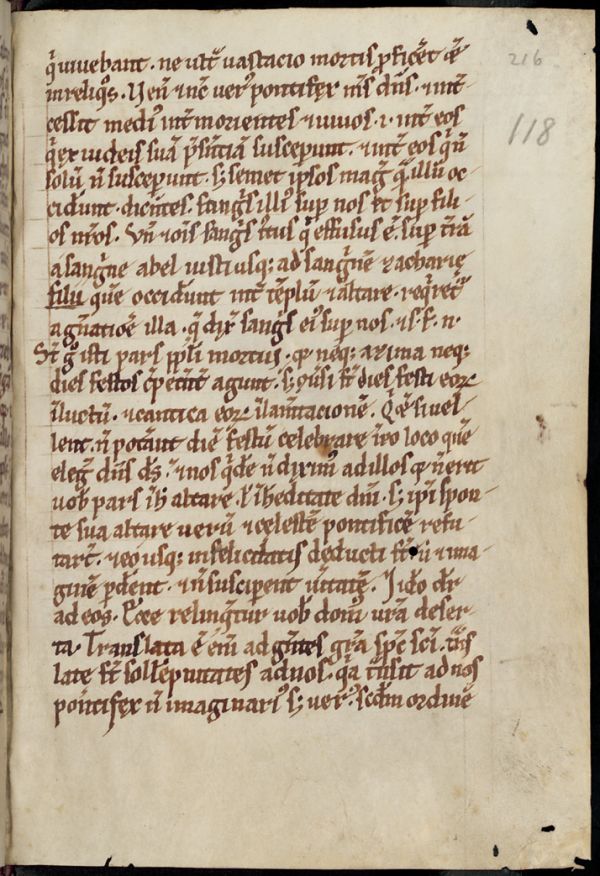 216
118
q̄ uiuebant. ne ult̄ uastacio mortis ꝓficēt̄ ē
in reliq̊s. Ven̄ & nc̄ uer᷒ pontifex nr̄s dn̄s. & int̄
cessit medi᷒ int̄ morientes & uiuos. ·i· int̄ eos
q̄ ex iudeis suā p̄sn̄tiā susceperunt. & int̄ eos q̄ n̄
solū n̄ susceperunt. s; semet ipsos mag̅ q̄ illū oc-
cidunt. dicentes. sang̅s illi᷒ sup̄ nos & sup̄ fili-
os nr̄os. Vn̄ & om̄is sang̅s iust᷒ q̄ effusus ē sup̄ tr̄ā
a sang̅ne abel iusti usq; ad sang̅nē zacharię
filii quē occid̄unt int̄ tēplū & altare. req̄ret᷒
a gn̄atiōe illa. q̄ dix̄ sang̅s ei᷒ sup̄ nos. & s. f. n.
St̄ g̊ isti pars ppl̄i mortui. q̄ neq; azima neq;
dies festos c̄petent̄ agunt. s; q̊si st̄ dies festi eoꝝ
ī luctū. & cantica eoꝝ ī lam̄tacionē. Q̄ & si uel-
lent. n̄ potant̄ diē festū celebrare ī eo loco quē
eleg̅ dn̄s ds̄. & nos q̄dē n̄ dixim᷒ ad illos q̄ n̄ erit
uob̄ pars ī h̄ altare. ł ī h̄editate dn̄i. s; ip̄i spon-
te sua altare uerū & celestē pontificē refu-
tart̄. & eo usq; infelicitatis deducti st̄ ut & ima-
ginē ꝑdent. & n̄ suscip̄ent ueritatē. Ido dr̄
ad eos. Ecce relinq̄tur uob̄ dom᷒ ur̄a deser-
ta. Translata ē eni᷒ ad gn̄tes gr̄a spc̄ scī. t̄ns
late st̄ sollēpnitates ad nos. q̄a t̄nsit ad nos
pontifex n̄ imaginari᷒ s; uer᷒. scd̄m ordinē